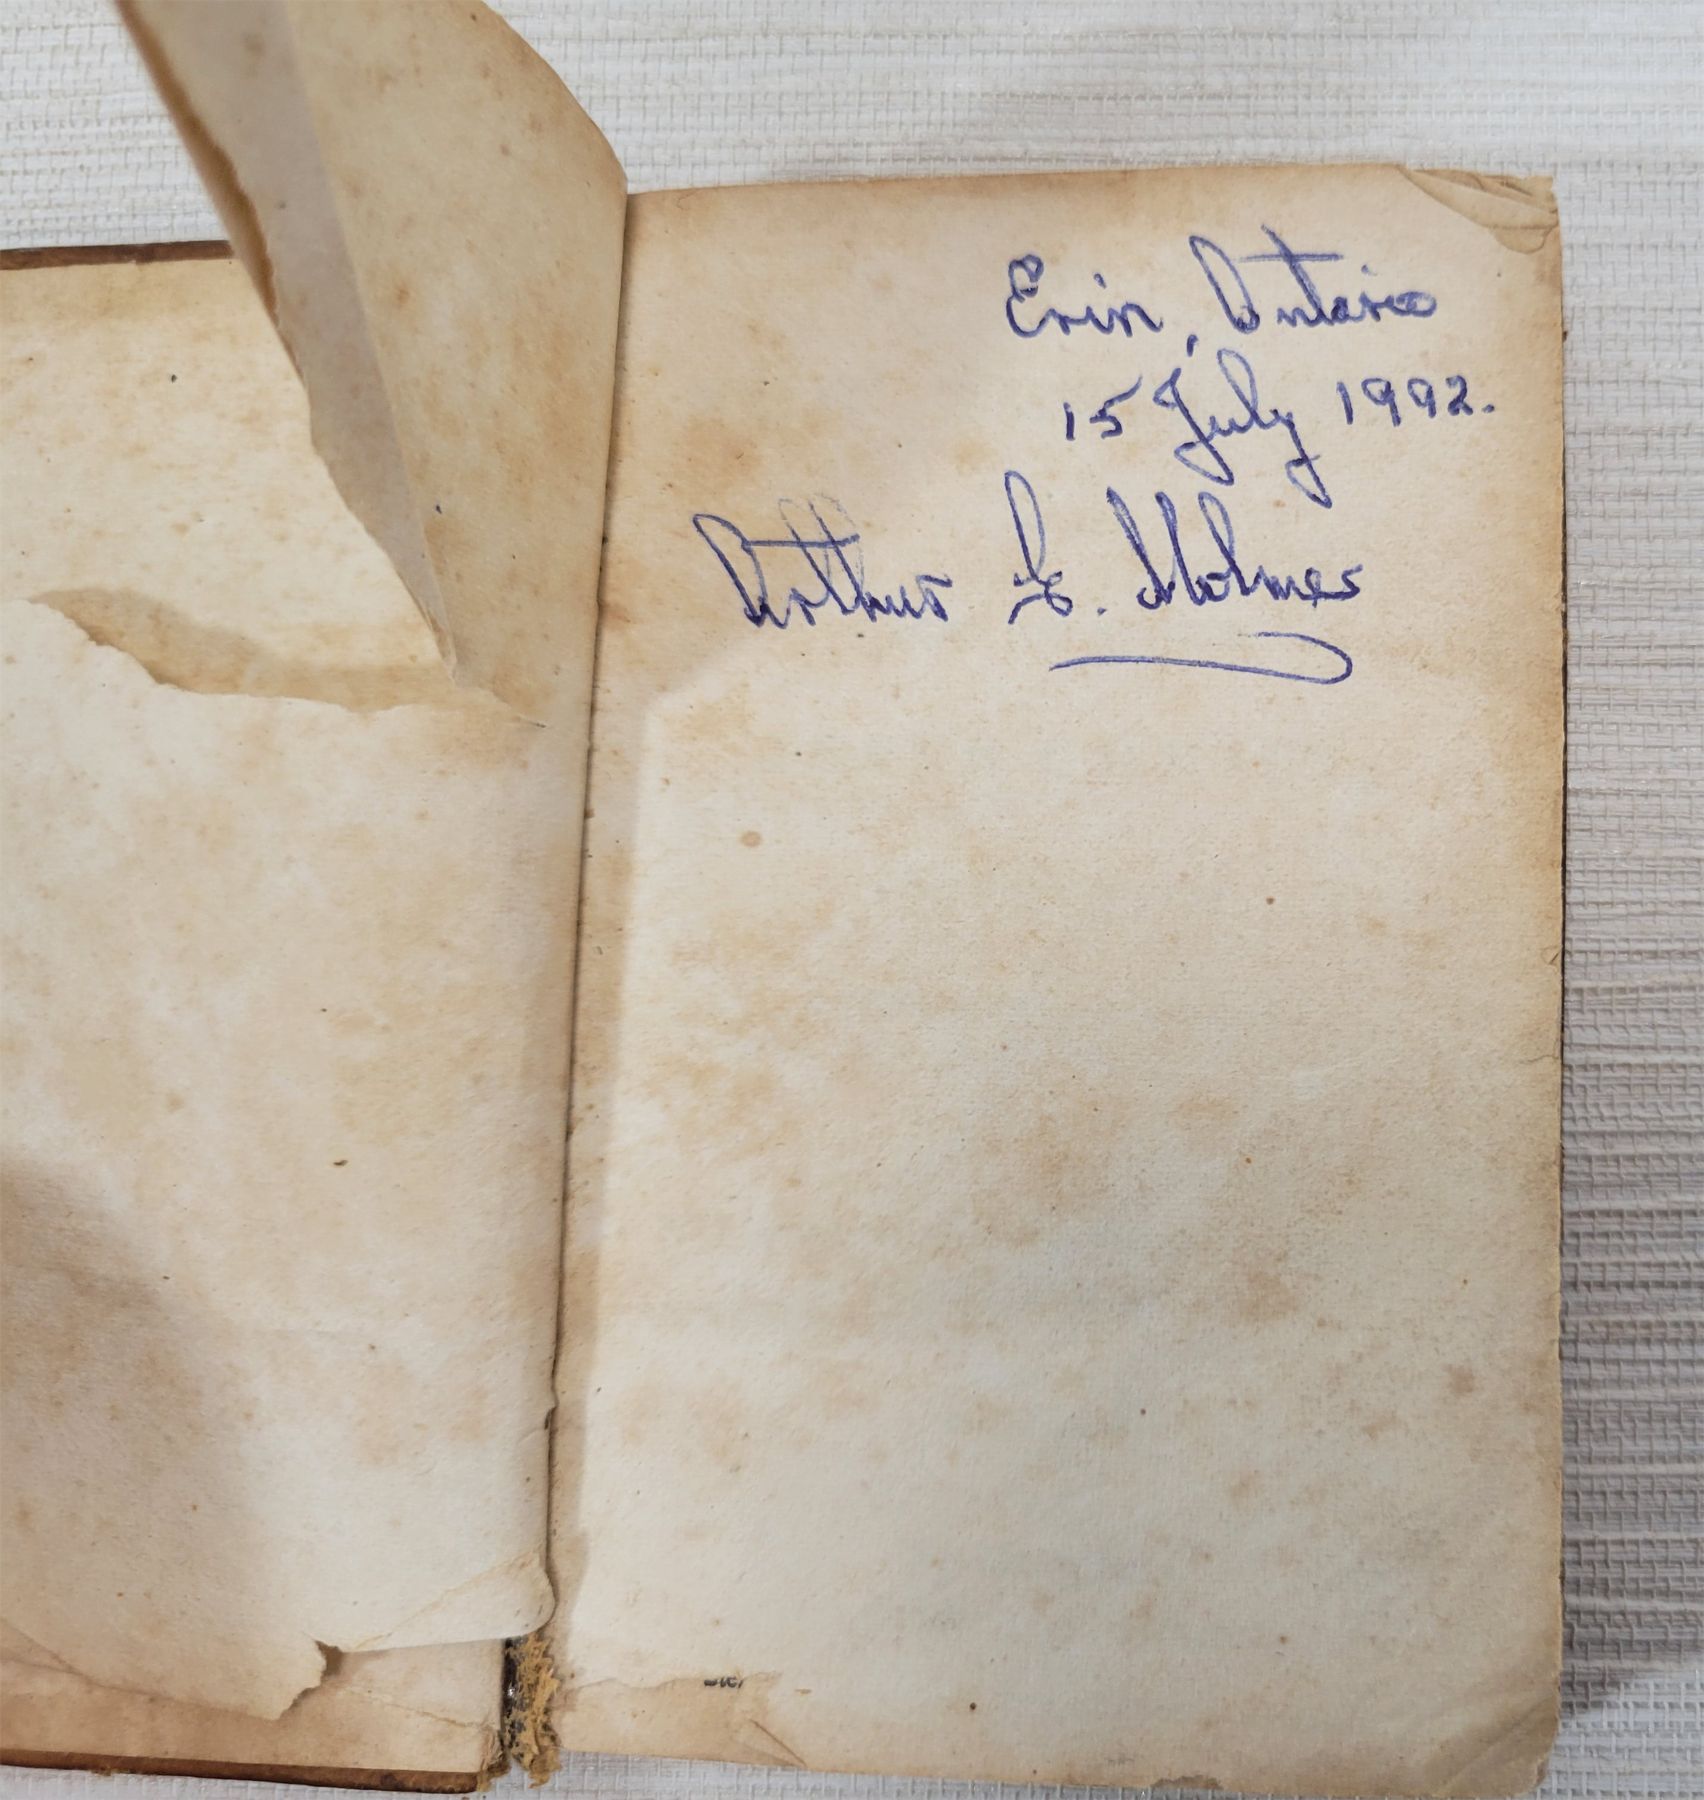 Erin, Ontario
15 July 1992.
Arthur L. Holmes